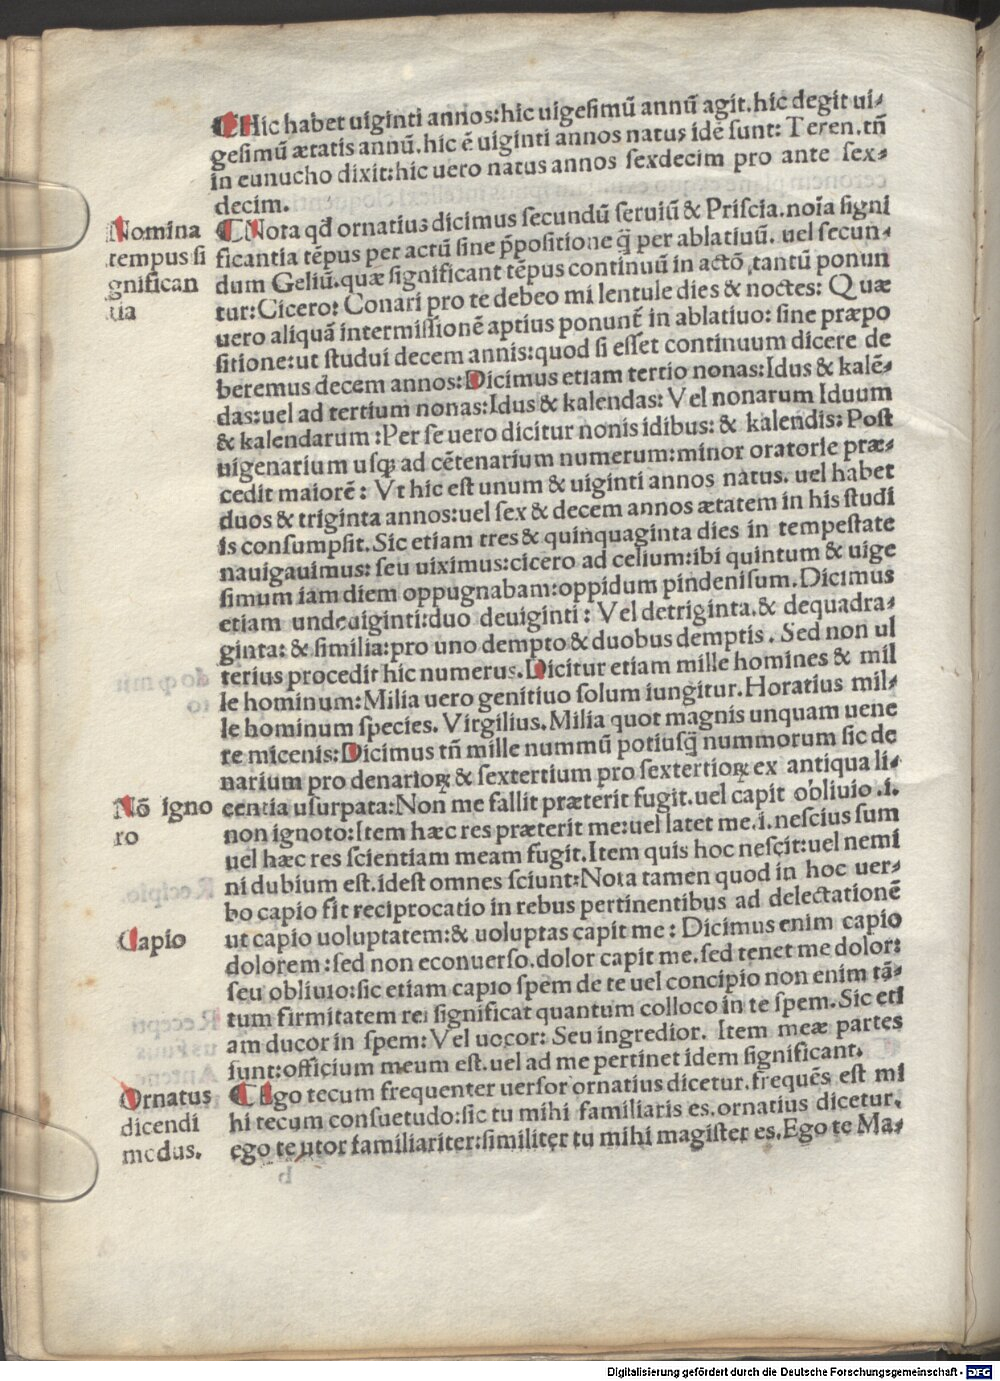 ¶ Hic habet uiginti annos:hic uigesimū annū agit.hic degit ui⸗
gesimū ætatis annū.hic ē uiginti annos natus idē sunt: Teren.tñ
in eunucho dixit:hic uero natus annos sexdecim pro ante sex⸗
decim.
Nomina
tempus si
gnifican
tia
¶ Nota qđ ornatius dicimus secundū seruiū & Priscia.noīa signi
ficantia tēpus per actū sine p̄positione q̄ per ablatiuū. uel secun⸗
dum Geliū.quæ significant tēpus continuū in actō,tantū ponun
tur:Cicero: Conari pro te debeo mi lentule dies & noctes: Quæ
uero aliquā intermissionē aptius ponunt̄ in ablatiuo: sine præpo
sitione:ut studui decem annis:quod si esset continuum dicere de
beremus decem annos:Dicimus etiam tertio nonas:Idus & kalē⸗
das:uel ad tertium nonas:Idus & kalendas: Vel nonarum Iduum
& kalendarum :Per se uero dicitur nonis idibus: & kalendis: Post
uigenarium usq; ad cētenarium numerum:minor oratorie præ⸗
cedit maiorē: Vt hic est unum & uiginti annos natus. uel habet
duos & triginta annos:uel sex & decem annos ætatem in his studi
is consumpsit.Sic etiam tres & quinquaginta dies in tempestate
nauigauimus: seu uiximus:cicero ad celium:ibi quintum & uige
simum iam diem oppugnabam:oppidum pindenisum.Dicimus
etiam undeuiginti:duo deuiginti: Vel detriginta.& dequadra⸗
ginta: & similia:pro uno dempto & duobus demptis. Sed non ul
terius procedit hic numerus.Dicitur etiam mille homines & mil
le hominum: Milia uero genitiuo solum iungitur.Horatius mil⸗
le hominum species. Virgilius.Milia quot magnis unquam uene
re micenis:Dicimus tñ mille nummū potiusq̄ nummorum sic de
narium pro denarioꝝ & sextertium pro sextertioꝝ ex antiqua li⸗
Nō igno
ro
centia usurpata:Non me fallit præterit fugit.uel capit obliuio .i.
non ignoto:Item hæc res præterit me:uel latet me.i.nescius sum
uel hæc res scientiam meam fugit.Item quis hoc nescit:uel nemi
ni dubium est.idest omnes sciunt:Nota tamen quod in hoc uer⸗
bo capio fit reciprocatio in rebus pertinentibus ad delectationē
Capio
ut capio uoluptatem:& uoluptas capit me: Dicimus enim capio
dolorem:sed non econuerso.dolor capit me.sed tenet me dolor:
seu obliuio:sic etiam capio spem de te uel concipio non enim tā⸗
tum firmitatem rei significat quantum colloco in te spem.Sic eti
am ducor in spem: Vel uocor: Seu ingredior. Item meæ partes
sunt:officium meum est.uel ad me pertinet idem significant.
Ornatus
dicendi
modus.
¶ Ego tecum frequenter uersor ornatius dicetur.frequēs est mi
hi tecum consuetudo:sic tu mihi familiaris es.ornatius dicetur.
ego te utor familiariter:similiter tu mihi magister es.Ego te Ma⸗
Digitalisierung gefördert durch die Deutsche Forschungsgemeinschaft - DFG